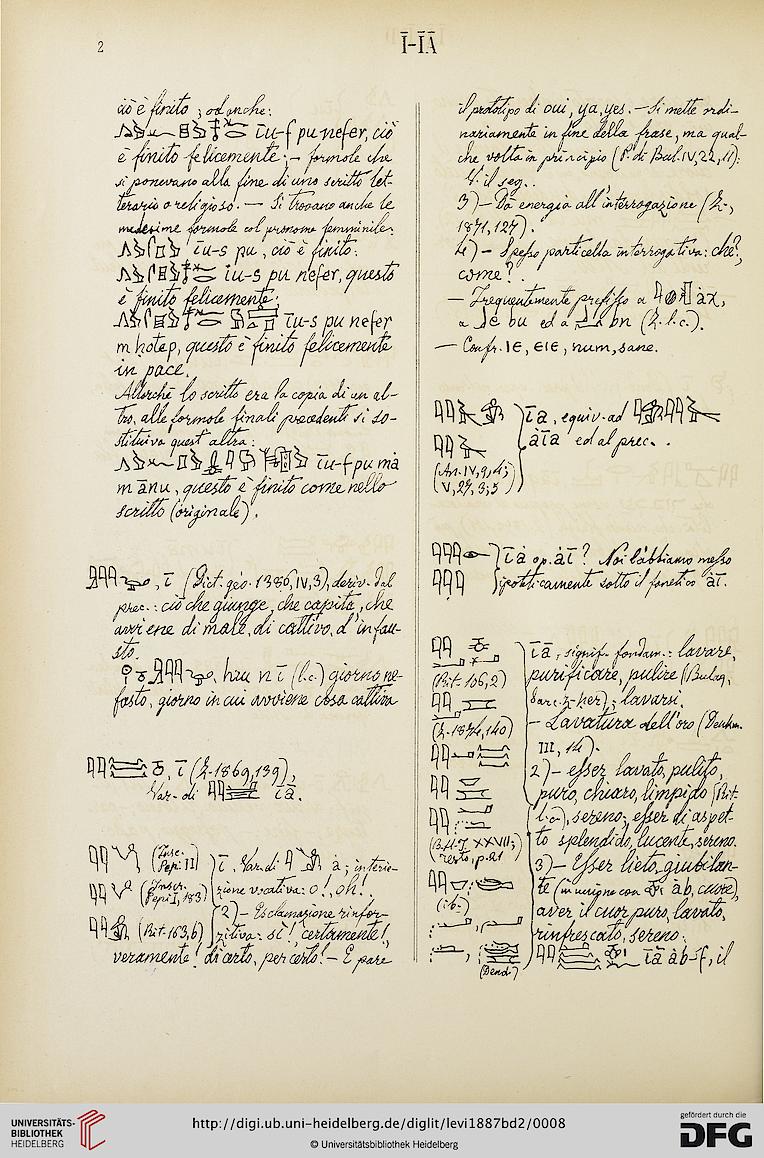 2
Ī-ĪȦ
ciò è finito ; od anche:
īu-f pu nefer, ciò
è finito felicemente ; – formole che
si ponevano alla fine di uno scritto let-
terario o religioso. — Si trovano anche le
medesime formole col pronome femminile:
īu-s pu, ciò è finito.
īu-s pu nefer, questo
è finito felicemente;
īu-s pu nefer
m hotep, questo è finito felicemente
in pace.
Allorchè lo scritto era la copia di un al-
tro, alle formole finali precedenti si so-
stituiva quest' altra:
īu-f pu mȧ
m ānu, questo è finito come nello
scritto (originale).
, ī (Dict. géo. 1386, IV, 3), deriv. dal
prec.: ciò che giunge, che capita, che
avviene di male, di cattivo, d'infau-
sto.
, hru n ī (l.c.) giorno ne-
fasto, giorno in cui avviene cosa cattiva
, ī (Z. 1869, 139),
Var. di īȧ.
(Inscr. Pepi II)
(Inscr. Pepi I, 183)
(Rit. 163, 6)
ī, Var. di ȧ; interie-
zione vocativa: o!, oh!
2) – Esclamazione rinfor-
zitiva: sì!, certamente!,
veramente! di certo, per certo! – E pare
il prototipo di oui, ya, yes. – Si mette ordi-
nariamente in fine della frase, ma qual-
che volta in principio (P. di Bul. IV, 22, 11):
V. il seg..
3) – Dà energia all'interrogazione (Z.,
1871, 127).
4) – Spesso particella interrogativa: che?,
come?
— Frequentemente prefisso a ȧχ,
a bu ed a bn (Z. l.c.).
— Confr. ⲓⲉ, ⲉⲓⲉ, num, sane.
(An. IV, 9, 4;
V, 27, 3; 5)
īa, equiv. ad
ȧīa ed al prec..
īȧ op. ȧī? Noi l'abbiamo messo
ipoteticamente sotto il fonetico ȧī.
(Rit. 106, 2)
(Z. 1874, 140)
(B.H.T. XXVII;
testo, p. 21)
(ib.)
(Dend.)
īā, signif. fondam.: lavare,
purificare, pulire (Bulaq,
Sarc. ); lavarsi.
– Lavatura dell'oro (Denkm.
III, 14).
2) – esser lavato, pulito,
puro, chiaro, limpido (Rit.
l.c.), sereno; esser di aspet-
to splendido, lucente, sereno.
3) – Esser lieto, giubilan-
te (in unione con ȧb, cuore),
aver il cuor puro, lavato,
rinfrescato, sereno:
īā ȧb-f, il
UNIVERSITÄTS-
BIBLIOTHEK
HEIDELBERG
http://digi.ub.uni-heidelberg.de/diglit/levi1887bd2/0008
© Universitätsbibliothek Heidelberg
gefördert durch die
DFG